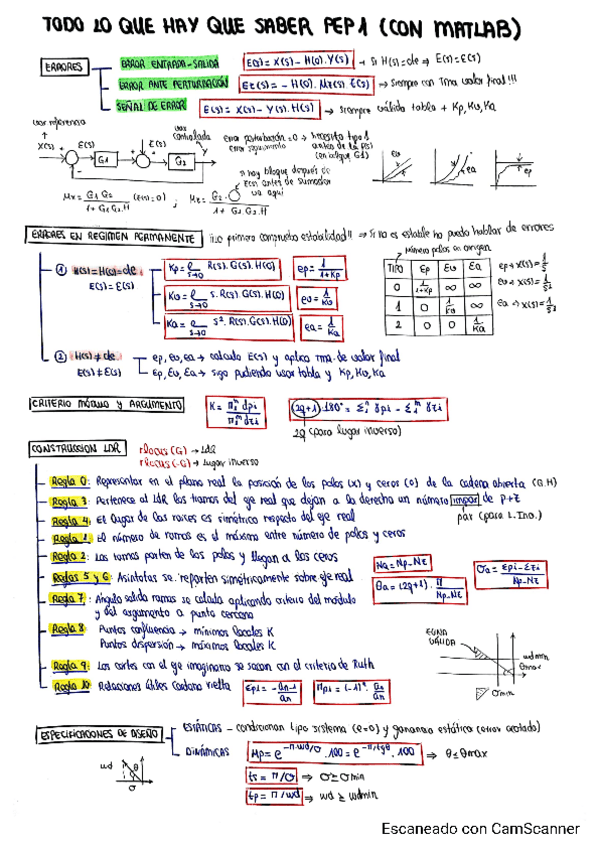 TODO LO QUE HAY QUE SABER PEP1 (CON MATLAB)
ERRORES
ERROR ENTRADA-SALIDA E(s) = X(s) - H(0).Y(s) → Si H(s)=cte ⇒ E(s)=Ɛ(s)
ERROR ANTE PERTURBACIÓN Siempre con Tma valor final!!!
SEÑAL DE ERROR Ɛ(s) = X(s) - Y(s).H(s) → siempre válida tabla + Kp, Kv, Ka
var referencia
var controlada
X(s) Ɛ(s) G1 G2 Y
Error perturbación = 0 → necesito tipo 1
antes de la
(en bloque G1)
si hay bloque después de
antes de sumador
va aquí
ev ea ep
ERRORES EN REGIMEN PERMANENTE ¡¡Lo primero compruebo estabilidad!! ⇒ Si no es estable no puedo hablar de errores
Número polos en origen
① H(s) = H(0) = cte
E(s) = Ɛ(s)
ep = 1/(1+Kp)
TIPO Ɛp Ɛv Ɛa
0 1/(1+Kp) ∞ ∞
1 0 ∞
2 0 0 1/Ka
② H(s) ≠ cte
E(s) ≠ Ɛ(s)
ep, ev, ea → calculo E(s) y aplico Tma. de valor final
Ɛp, Ɛv, Ɛa → sigo pudiendo usar tabla y Kp, Kv, Ka
CRITERIO MÓDULO Y ARGUMENTO
2q (para lugar inverso)
CONSTRUCCION LDR rlocus(G) → LDR
rlocus(-G) → Lugar inverso
Regla 0: Representar en el plano real la posición de los polos (x) y ceros (o) de la cadena abierta (G.H)
Regla 3: Pertenece al LDR los tramos del eje real que dejan a la derecha un número impar de p+z
par (para L.Inv.)
Regla 4: El lugar de las raíces es simétrico respecto del eje real
Regla 1: El número de ramas es el máximo entre número de polos y ceros
Regla 2: Las ramas parten de los polos y llegan a los ceros
Reglas 5 y 6: Asíntotas se reparten simétricamente sobre eje real
Na = Np - Nz
θa = (2q+1).π/(Np-Nz)
σa = (Σpi - Σzi)/(Np-Nz)
Regla 7: Ángulo salida ramas se calcula aplicando criterio del módulo
y del argumento a punto cercano
Regla 8: Puntos confluencia → mínimos locales K
Puntos dispersión → máximos locales K
Regla 9: Los cortes con el eje imaginario se sacan con el criterio de Ruth
Regla 10: Relaciones útiles Cardano Vietta
ZONA
VÁLIDA
wdmin
θmax
σmin
ESPECIFICACIONES DE DISEÑO
ESTÁTICAS - condicionan tipo sistema (e=0) y ganancia estática (error acotado)
DINÁMICAS ⇒ θ ≤ θmax
ts = π/σ ⇒ σ ≥ σmin
tp = π/wd ⇒ wd ≥ wdmin
wd θ σ
Escaneado con CamScanner